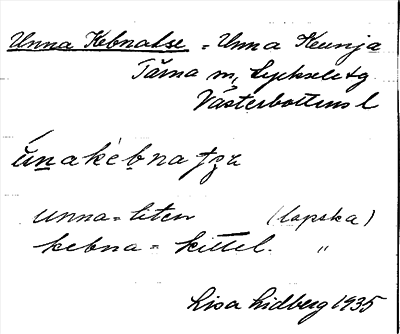 Unna Kebnatse = Unna Keunja
Tärna sn, Lycksele tg.
Västerbottens l
unna = liten (lapska)
kebna = kittel. "
Lisa Lidberg 1935